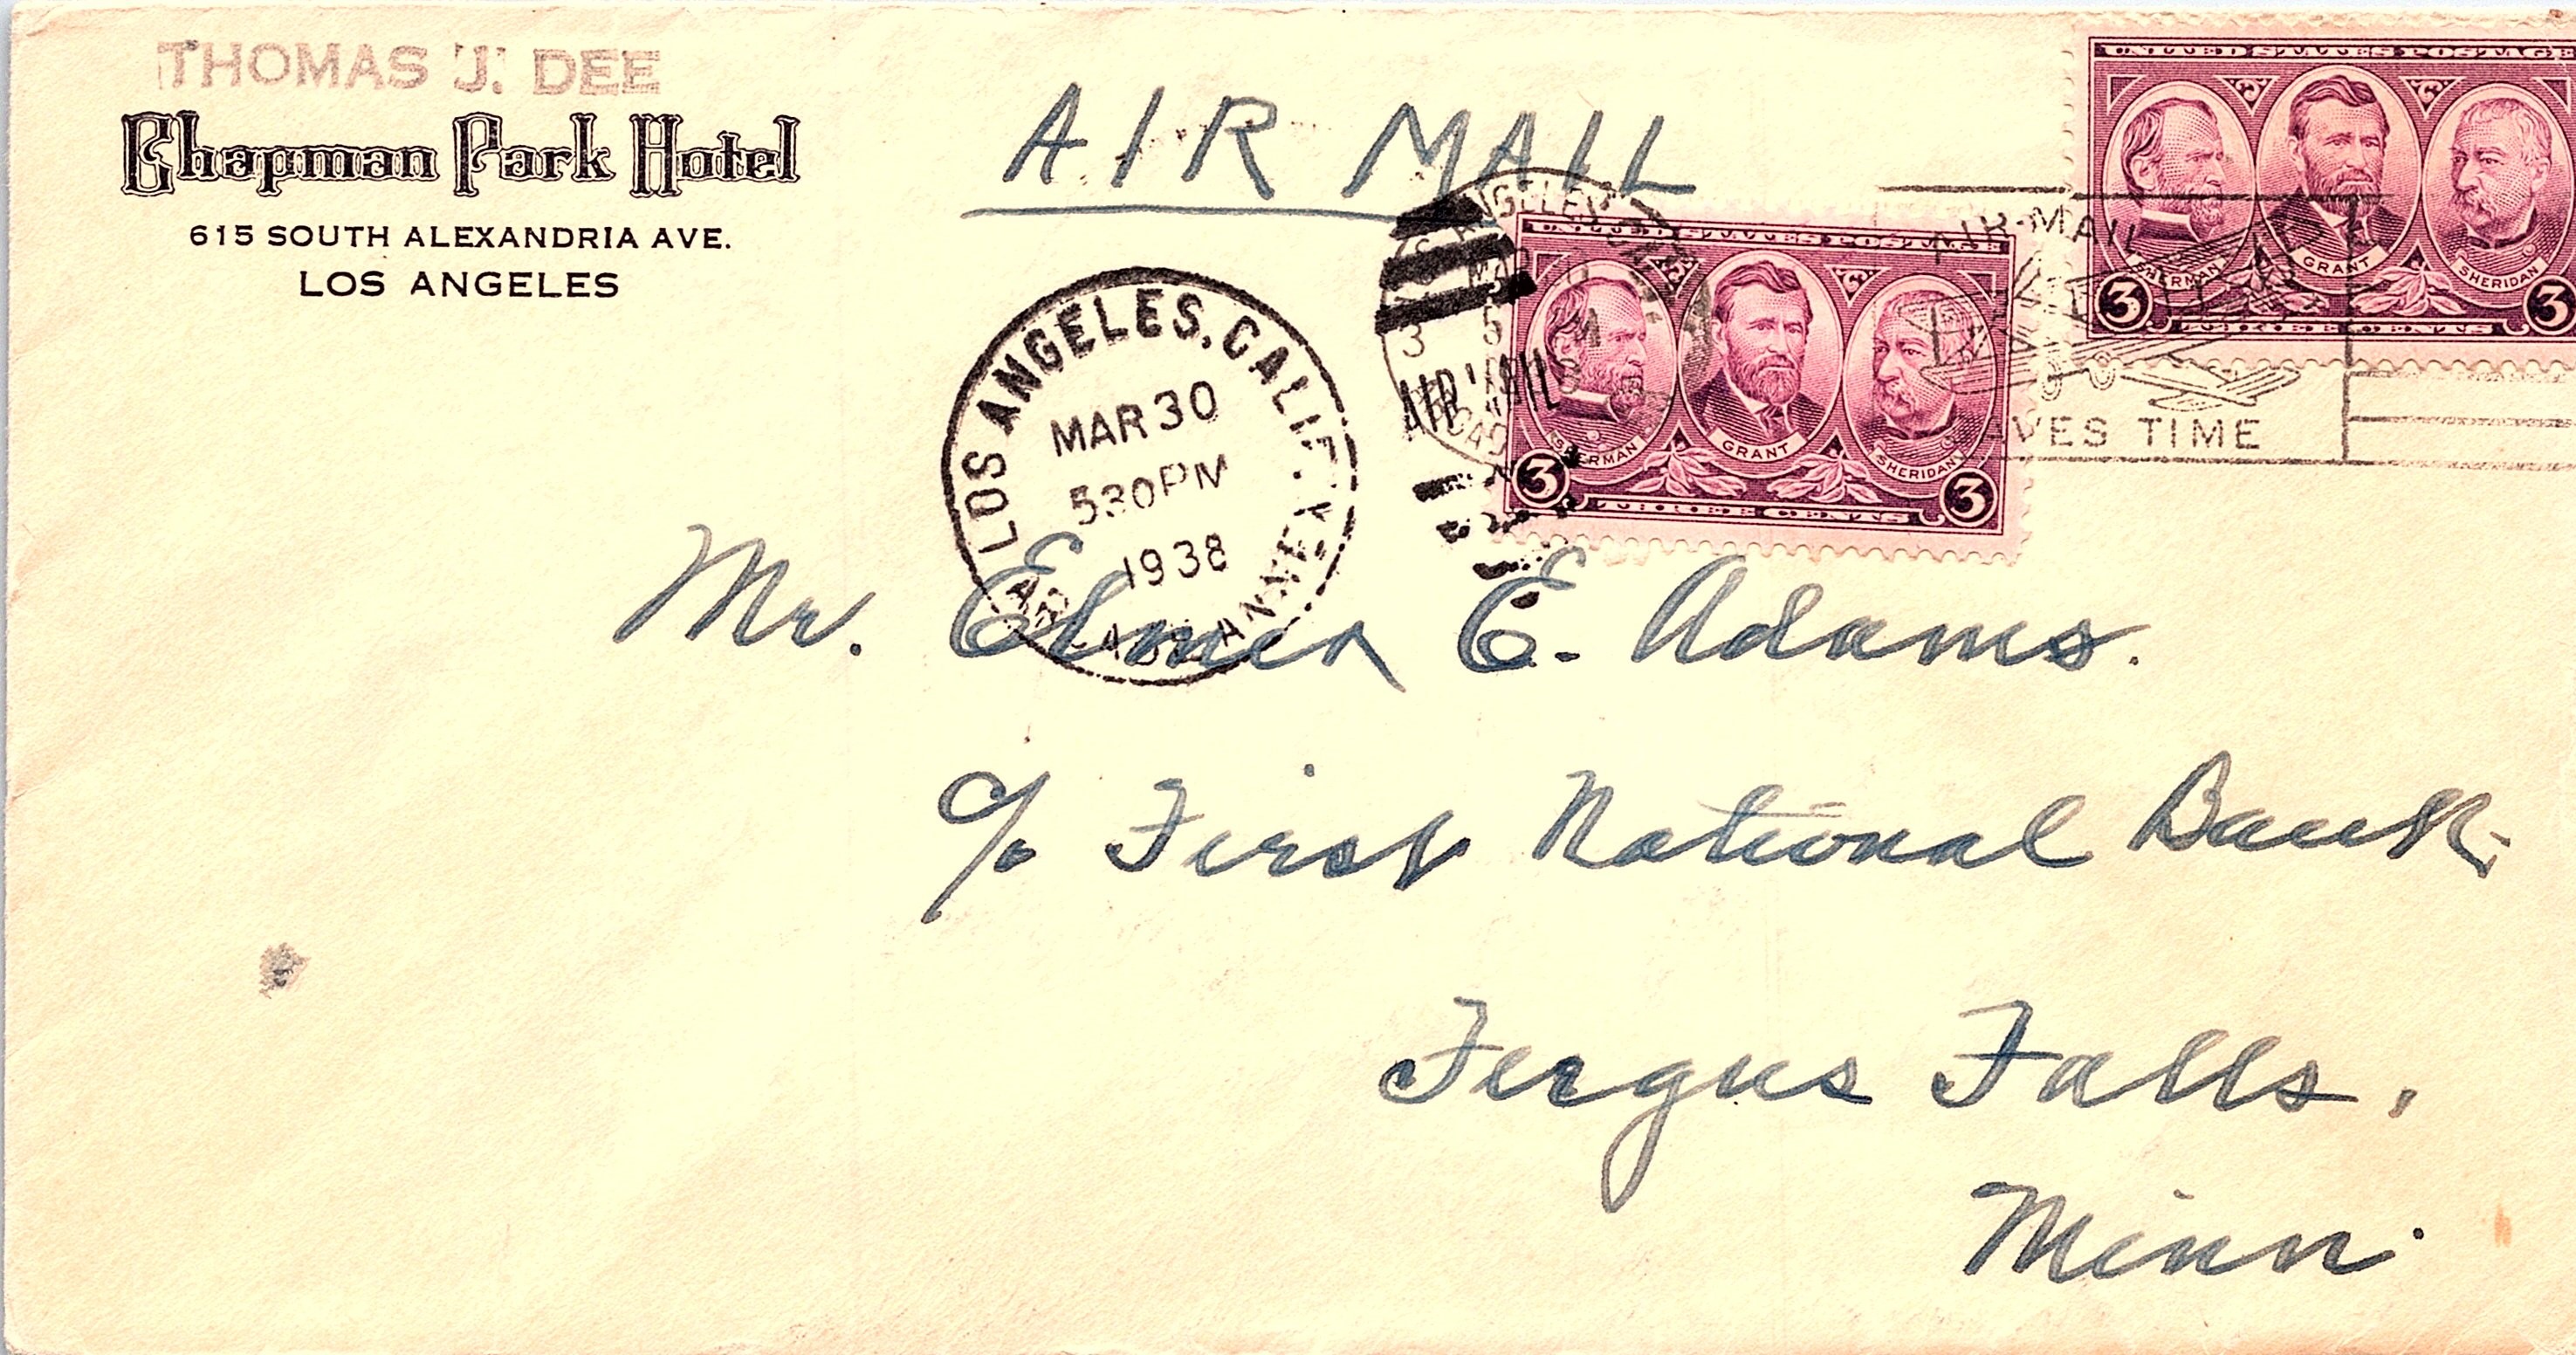 THOMAS J. DEE
Chapman Park Hotel
615 SOUTH ALEXANDRIA AVE.
LOS ANGELES
AIR MAIL
LOS ANGELES, CALIF.
MAR 30
530 PM
1938
ANNEX
AIR MAIL
UNITED STATES POSTAGE
SHERMAN GRANT SHERIDAN
3 THREE CENTS 3
UNITED STATES POSTAGE
SHERMAN GRANT SHERIDAN
3 THREE CENTS 3
AIR MAIL
TIME
Mr. Elmer E. Adams.
c/o First National Bank
Fergus Falls,
Minn.